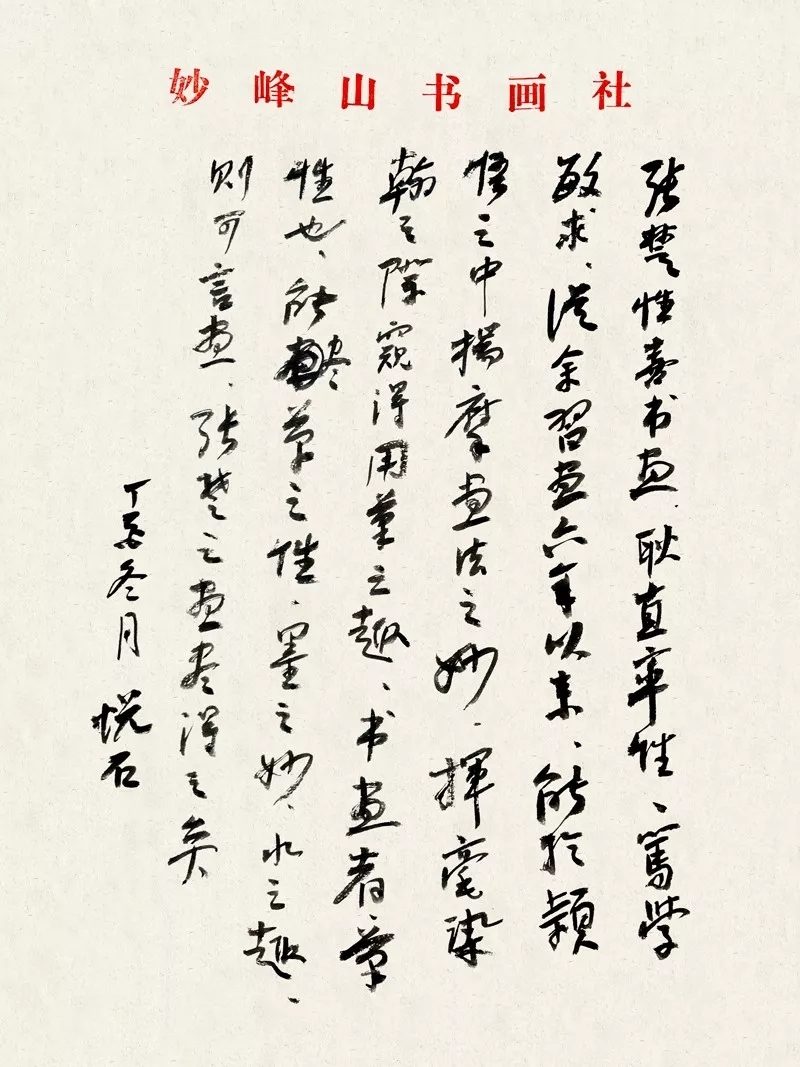 妙峰山书画社
张楚性喜书画、耿直率性、篤学
敏求、従余習画六年以来、能於颖
悟之中揣摩画法之妙、揮毫染
翰之際窺得用筆之趣、书画者、筆
性也、能盡筆之性、墨之妙、水之趣、
则可言画、张楚之画尽得之矣
丁酉冬月 悦石